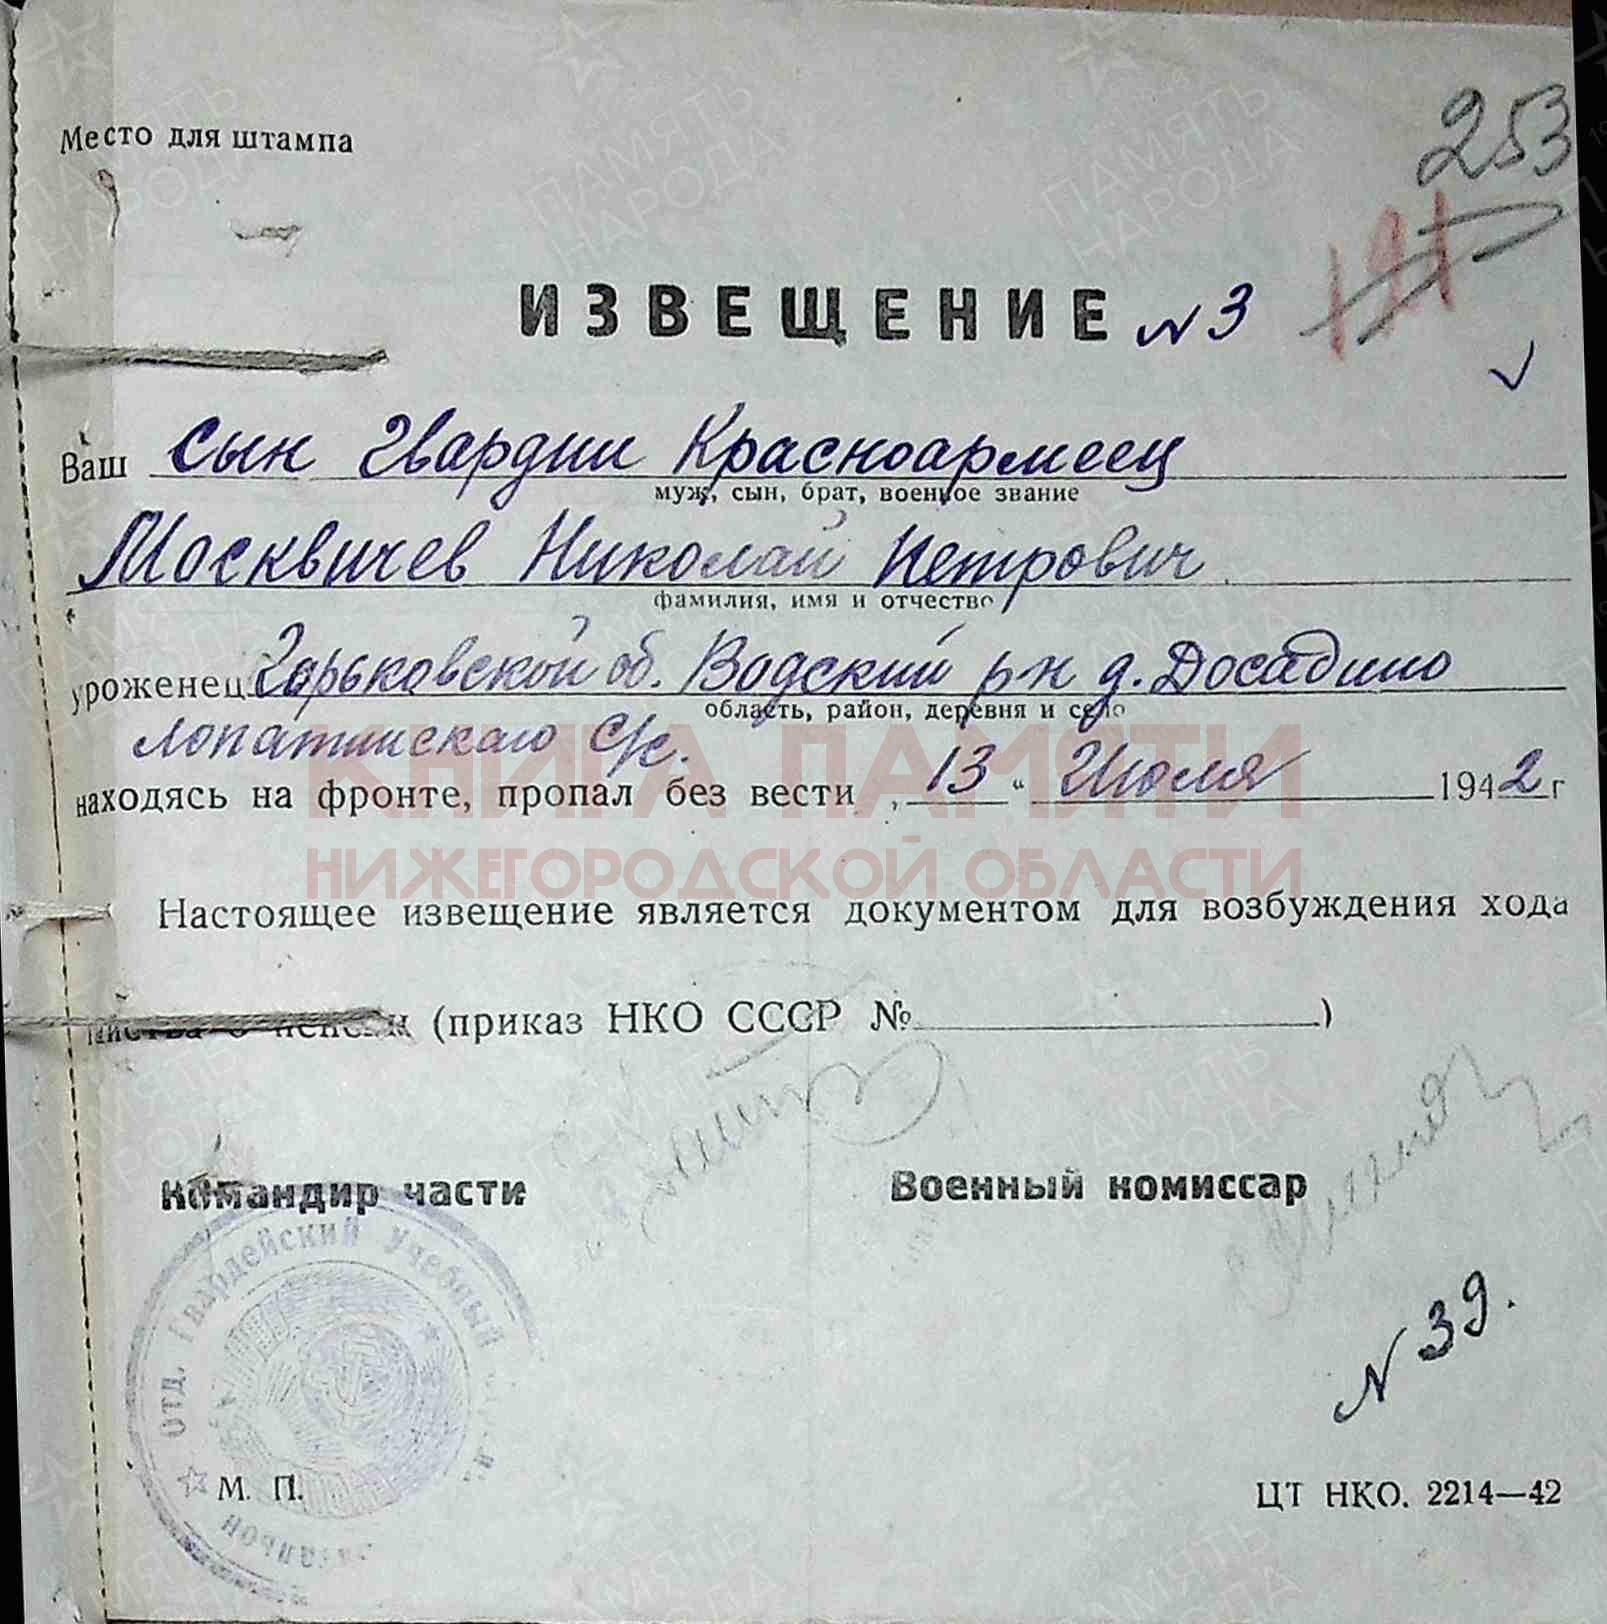 253
Место для штампа
191
ИЗВЕЩЕНИЕ N 3
Ваш Сын Гвардии Красноармеец
муж, сын, брат, военное звание
Москвичев Николай Петрович
фамилия, имя и отчество
уроженец Горьковской об. Водский р-н д. Досадино
область, район, деревня и село
Лопатинского С/с.
находясь на фронте, пропал без вести „13“ Июля 1942 г
КНИГА ПАМЯТИ
НИЖЕГОРОДСКОЙ ОБЛАСТИ
Настоящее извещение является документом для возбуждения хода
о пенсии (приказ НКО СССР № )
Командир части Военный комиссар
Отд. Гвардейский учебный
батальон
N 39.
М. П.
ЦТ НКО. 2214—42
ПАМЯТЬ НАРОДА